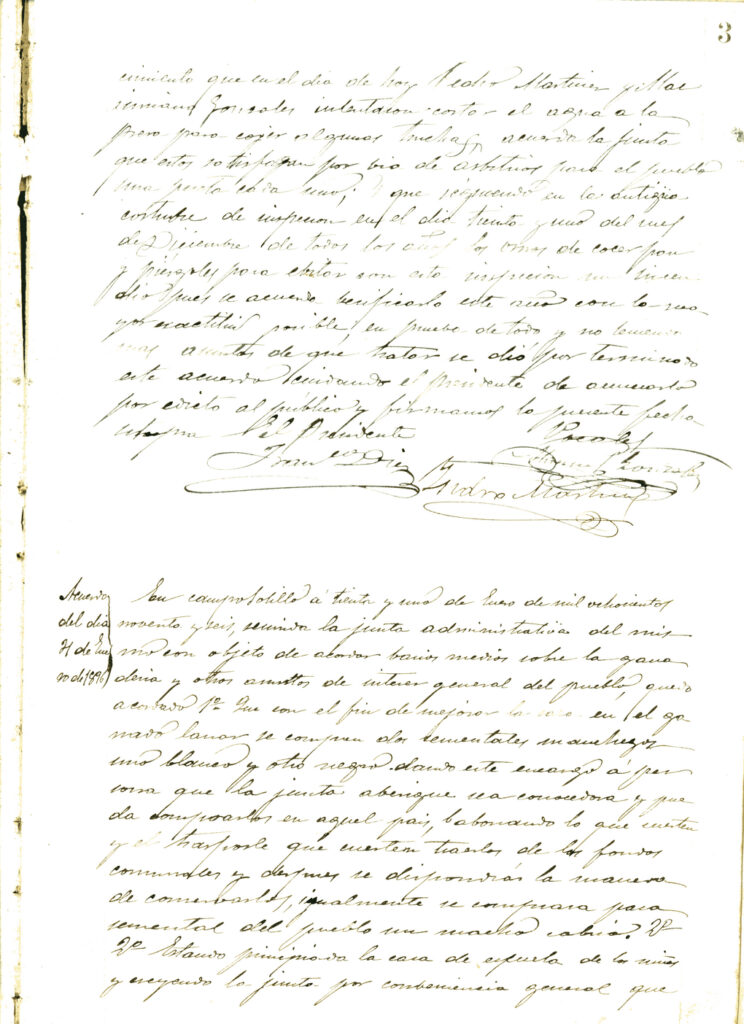 3
cimiento que en el dia de hoy Pedro Martinez y Mac
simiano Gonzales intentaron cortar el agua a la
presa para cojer algunas truchas, acuerda la junta
que estos satisfagan por via de arbitrios para el pueblo
una peseta cada uno; y que siguiendo en la antigua
costubre de inspecion en el dia trenta y uno del mes
de Diciembre de todos los años los ornos de cocer pan
y para ebitar con esta inspecion un incen
dio pues se acuerda berificarlo este año con la ma
yor exactitud posible, en prueba de todo y no teniendo
mas asuntos de que tratar se dió por terminado
este acuerdo cuidando el Presidente de anunciarlo
por edicto al público y firmamos la presente fecha
El Presidente Vocales
Franco Diez Gonzalez
Pedro Martinez
Acuerdo
del dia
31 de Ene
ro de 1896
En Camposolillo á trenta y uno de Enero de mil ochocientos
noventa y seis, reunida la junta administrativa del mis
mo con objeto de acordar barios medios sobre la gana
deria y otros asuntos de interes general del pueblo, quedo
acordado 1º Que con el fin de mejorar la raza en el ga
nado lanar se compren dos sementales manchegos
uno blanco y otro negro dando este encargo á per
sona que la junta aberigue sea conocedora y pue
da comprarlos en aquel pais, babonando lo que cuesten
y el trasporte que cuesten traerlos de los fondos
comunales y despues se dispondrás la manera
de conservarlos, igualmente se comprara para
semental del pueblo un macho cabrio. 2º
2º Estando principiada la casa de escuela de los niños
y creyendo la junta por combeniencia general que